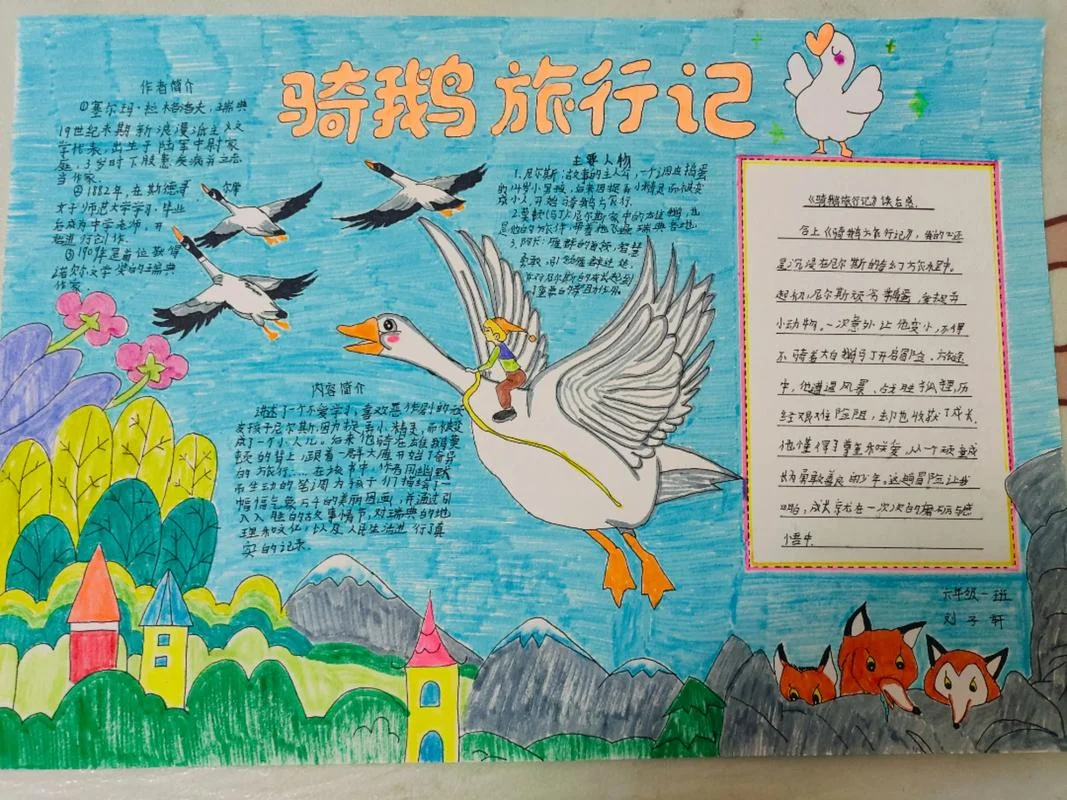 骑鹅旅行记
作者简介
①塞尔玛·拉格洛夫,瑞典
19世纪末期新浪漫派主义文
学代表,出生于陆军中尉家
庭,3岁时下肢患疾病并立志
当作家。
②1882年,在斯德哥尔摩
女子师范大学学习,毕业
后成为中学老师,开
始进行创作。
③1909年是首位获得
诺贝尔文学奖的瑞典
作家
主要人物
1.尼尔斯:故事的主人公,一个调皮捣蛋
的14岁小男孩,后来因捉弄小精灵而被变
成小人,开始骑鹅旅行。
2.莫顿(马丁)尼尔斯家中的雄鹅,也
是他的旅伴,带着他飞遍瑞典各地。
3.阿卡:雁群的首领,智慧
勇敢,引领雁群迁徙,
并对尼尔斯的成长起到
了重要的帮助作用。
内容简介
讲述了一个不爱学习,喜欢恶作剧的顽
皮孩子尼尔斯,因为捉弄小精灵,而被变
成了一个小人儿。后来他骑在雄鹅莫
顿的背上,跟着一群大雁开始了奇异
的旅行……在故事中,作者用幽默
而生动的笔调为孩子们描绘了一
幅幅气象万千的美丽图画,并通过引
人入胜的故事情节,对瑞典的地
理和文化,以及人民生活进行了真
实的记录。
《骑鹅旅行记》读后感。
合上《骑鹅旅行记》,我的心还
是沉浸在尼尔斯的奇幻旅程中。
起初,尼尔斯顽劣捣蛋,爱捉弄
小动物。一次意外让他变小,不得
不骑着大白鹅马丁开启冒险。旅途
中,他遭遇风暴、战胜狐狸,历
经艰难险阻,却也收获了成长。
他懂得了尊重和关爱,从一个顽童成
长为勇敢善良的少年。这趟冒险让我
明白,成长就在一次次的磨砺与感
悟中。
六年级一班
刘子轩